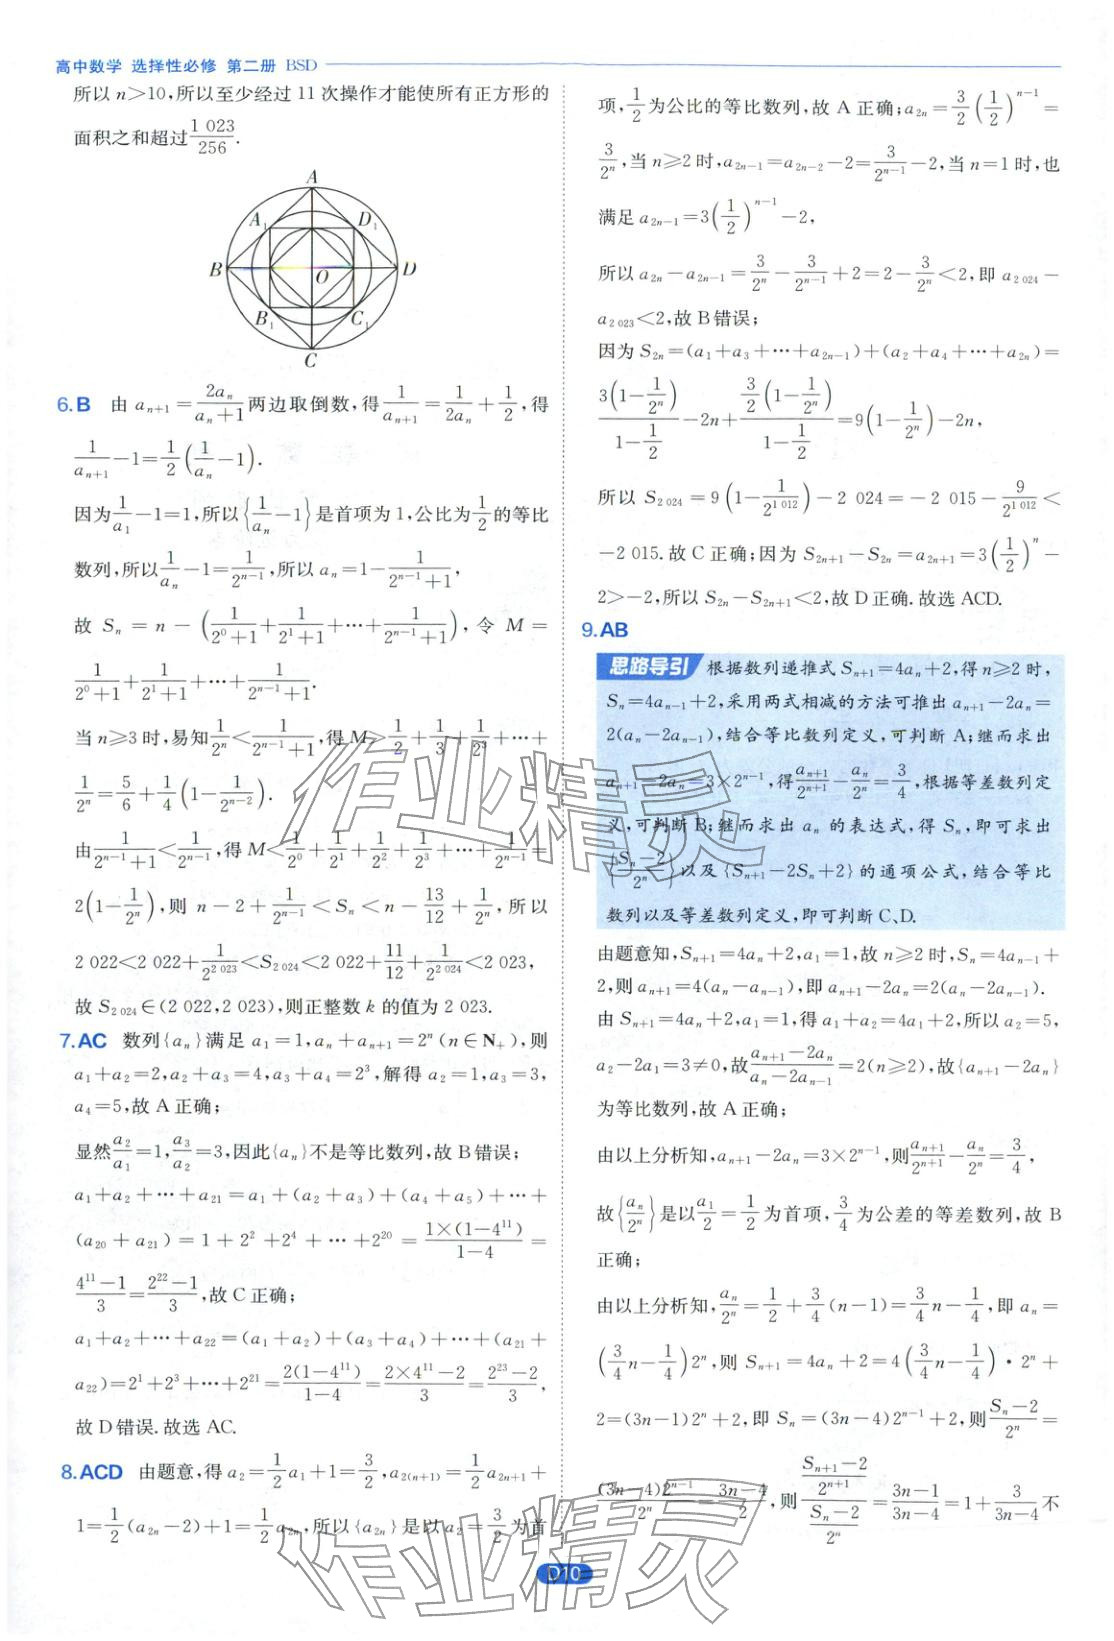 高中数学 选择性必修 第二册 BSD
所以 n>10,所以至少经过 11 次操作才能使所有正方形的
面积之和超过\frac{1 023}{256}.
A
A₁ D₁
B O D
B₁ C₁
C
6.B 由 a_{n+1}=\frac{2a_n}{a_n+1}两边取倒数,得\frac{1}{a_{n+1}}=\frac{1}{2a_n}+\frac{1}{2},得
\frac{1}{a_{n+1}}-1=\frac{1}{2}(\frac{1}{a_n}-1).
因为\frac{1}{a_1}-1=1,所以{\frac{1}{a_n}-1}是首项为 1,公比为\frac{1}{2}的等比
数列,所以\frac{1}{a_n}-1=\frac{1}{2^{n-1}},所以 a_n=1-\frac{1}{2^{n-1}+1},
故 S_n=n-(\frac{1}{2^0+1}+\frac{1}{2^1+1}+⋯+\frac{1}{2^{n-1}+1}),令 M=
\frac{1}{2^0+1}+\frac{1}{2^1+1}+⋯+\frac{1}{2^{n-1}+1}.
当 n≥3 时,易知\frac{1}{2^n}<\frac{1}{2^{n-1}+1},得 M>\frac{1}{2}+\frac{1}{3}+\frac{1}{2^3}+⋯+
\frac{1}{2^n}=\frac{5}{6}+\frac{1}{4}(1-\frac{1}{2^{n-2}}).
由\frac{1}{2^{n-1}+1}<\frac{1}{2^{n-1}},得 M<\frac{1}{2^0}+\frac{1}{2^1}+\frac{1}{2^2}+\frac{1}{2^3}+⋯+\frac{1}{2^{n-1}}=
2(1-\frac{1}{2^n}),则 n-2+\frac{1}{2^{n-1}}<S_n<n-\frac{13}{12}+\frac{1}{2^n},所以
2 022<2 022+\frac{1}{2^{2 023}}<S_{2 024}<2 022+\frac{11}{12}+\frac{1}{2^{2 024}}<2 023,
故 S_{2 024}∈(2 022,2 023),则正整数 k 的值为 2 023.
7.AC 数列{a_n}满足 a_1=1,a_n+a_{n+1}=2^n(n∈N_+),则
a_1+a_2=2,a_2+a_3=4,a_3+a_4=2^3,解得 a_2=1,a_3=3,
a_4=5,故 A 正确;
显然\frac{a_2}{a_1}=1,\frac{a_3}{a_2}=3,因此{a_n}不是等比数列,故 B 错误;
a_1+a_2+⋯+a_{21}=a_1+(a_2+a_3)+(a_4+a_5)+⋯+
(a_{20}+a_{21})=1+2^2+2^4+⋯+2^{20}=\frac{1×(1-4^{11})}{1-4}=
\frac{4^{11}-1}{3}=\frac{2^{22}-1}{3},故 C 正确;
a_1+a_2+⋯+a_{22}=(a_1+a_2)+(a_3+a_4)+⋯+(a_{21}+
a_{22})=2^1+2^3+⋯+2^{21}=\frac{2(1-4^{11})}{1-4}=\frac{2×4^{11}-2}{3}=\frac{2^{23}-2}{3},
故 D 错误.故选 AC.
8.ACD 由题意,得 a_2=\frac{1}{2}a_1+1=\frac{3}{2},a_{2(n+1)}=\frac{1}{2}a_{2n+1}+
1=\frac{1}{2}(a_{2n}-2)+1=\frac{1}{2}a_{2n},所以{a_{2n}}是以 a_2=\frac{3}{2}为首
项,\frac{1}{2}为公比的等比数列,故 A 正确;a_{2n}=\frac{3}{2}(\frac{1}{2})^{n-1}=
\frac{3}{2^n},当 n≥2 时,a_{2n-1}=a_{2n-2}-2=\frac{3}{2^{n-1}}-2,当 n=1 时,也
满足 a_{2n-1}=3(\frac{1}{2})^{n-1}-2,
所以 a_{2n}-a_{2n-1}=\frac{3}{2^n}-\frac{3}{2^{n-1}}+2=2-\frac{3}{2^n}<2,即 a_{2 024}-
a_{2 023}<2,故 B 错误;
因为 S_{2n}=(a_1+a_3+⋯+a_{2n-1})+(a_2+a_4+⋯+a_{2n})=
\frac{3(1-\frac{1}{2^n})}{1-\frac{1}{2}}-2n+\frac{\frac{3}{2}(1-\frac{1}{2^n})}{1-\frac{1}{2}}=9(1-\frac{1}{2^n})-2n,
所以 S_{2 024}=9(1-\frac{1}{2^{1 012}})-2 024=-2 015-\frac{9}{2^{1 012}}<
-2 015.故 C 正确;因为 S_{2n+1}-S_{2n}=a_{2n+1}=3(\frac{1}{2})^n-
2>-2,所以 S_{2n}-S_{2n+1}<2,故 D 正确.故选 ACD.
9.AB
思路导引 根据数列递推式 S_{n+1}=4a_n+2,得 n≥2 时,
S_n=4a_{n-1}+2,采用两式相减的方法可推出 a_{n+1}-2a_n=
2(a_n-2a_{n-1}),结合等比数列定义,可判断 A;继而求出
a_{n+1}-2a_n=3×2^{n-1},得\frac{a_{n+1}}{2^{n+1}}-\frac{a_n}{2^n}=\frac{3}{4},根据等差数列定
义,可判断 B;继而求出 a_n 的表达式,得 S_n,即可求出
{\frac{S_n-2}{2^n}}以及{S_{n+1}-2S_n+2}的通项公式,结合等比
数列以及等差数列定义,即可判断 C、D.
由题意知,S_{n+1}=4a_n+2,a_1=1,故 n≥2 时,S_n=4a_{n-1}+
2,则 a_{n+1}=4(a_n-a_{n-1}),即 a_{n+1}-2a_n=2(a_n-2a_{n-1}).
由 S_{n+1}=4a_n+2,a_1=1,得 a_1+a_2=4a_1+2,所以 a_2=5,
a_2-2a_1=3≠0,故\frac{a_{n+1}-2a_n}{a_n-2a_{n-1}}=2(n≥2),故{a_{n+1}-2a_n}
为等比数列,故 A 正确;
由以上分析知,a_{n+1}-2a_n=3×2^{n-1},则\frac{a_{n+1}}{2^{n+1}}-\frac{a_n}{2^n}=\frac{3}{4},
故{\frac{a_n}{2^n}}是以\frac{a_1}{2}=\frac{1}{2}为首项,\frac{3}{4}为公差的等差数列,故 B
正确;
由以上分析知,\frac{a_n}{2^n}=\frac{1}{2}+\frac{3}{4}(n-1)=\frac{3}{4}n-\frac{1}{4},即 a_n=
(\frac{3}{4}n-\frac{1}{4})2^n,则 S_{n+1}=4a_n+2=4(\frac{3}{4}n-\frac{1}{4})·2^n+
2=(3n-1)2^n+2,即 S_n=(3n-4)2^{n-1}+2,则\frac{S_n-2}{2^n}=
\frac{(3n-4)2^{n-1}}{2^n}=\frac{3n-4}{2},则\frac{\frac{S_{n+1}-2}{2^{n+1}}}{\frac{S_n-2}{2^n}}=\frac{3n-1}{3n-4}=1+\frac{3}{3n-4}不
D10
作业精灵
作业精灵